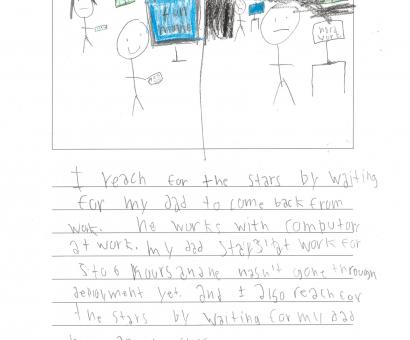 hard
work
I reach for the stars by waiting
for my dad to come back from
wok. he works with computors
at work. my dad stays at work for
5 to 6 hours and he hasn't gone through
deployment yet. and I also reach for
the stars by waiting for my dad